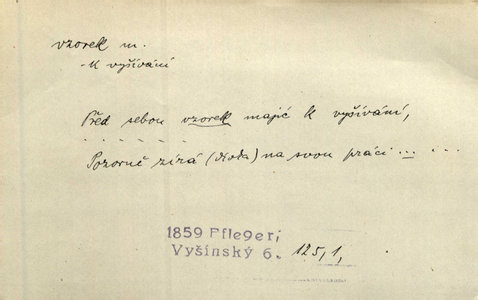 vzorek m.
- K vyšívání
Před sebou vzorek majíc k vyšívání,
. . . . . .
Pozorně zírá (Xoda) na svou práci ... ...
1859 Pfleger,
Vyšínský 6. 125,1,